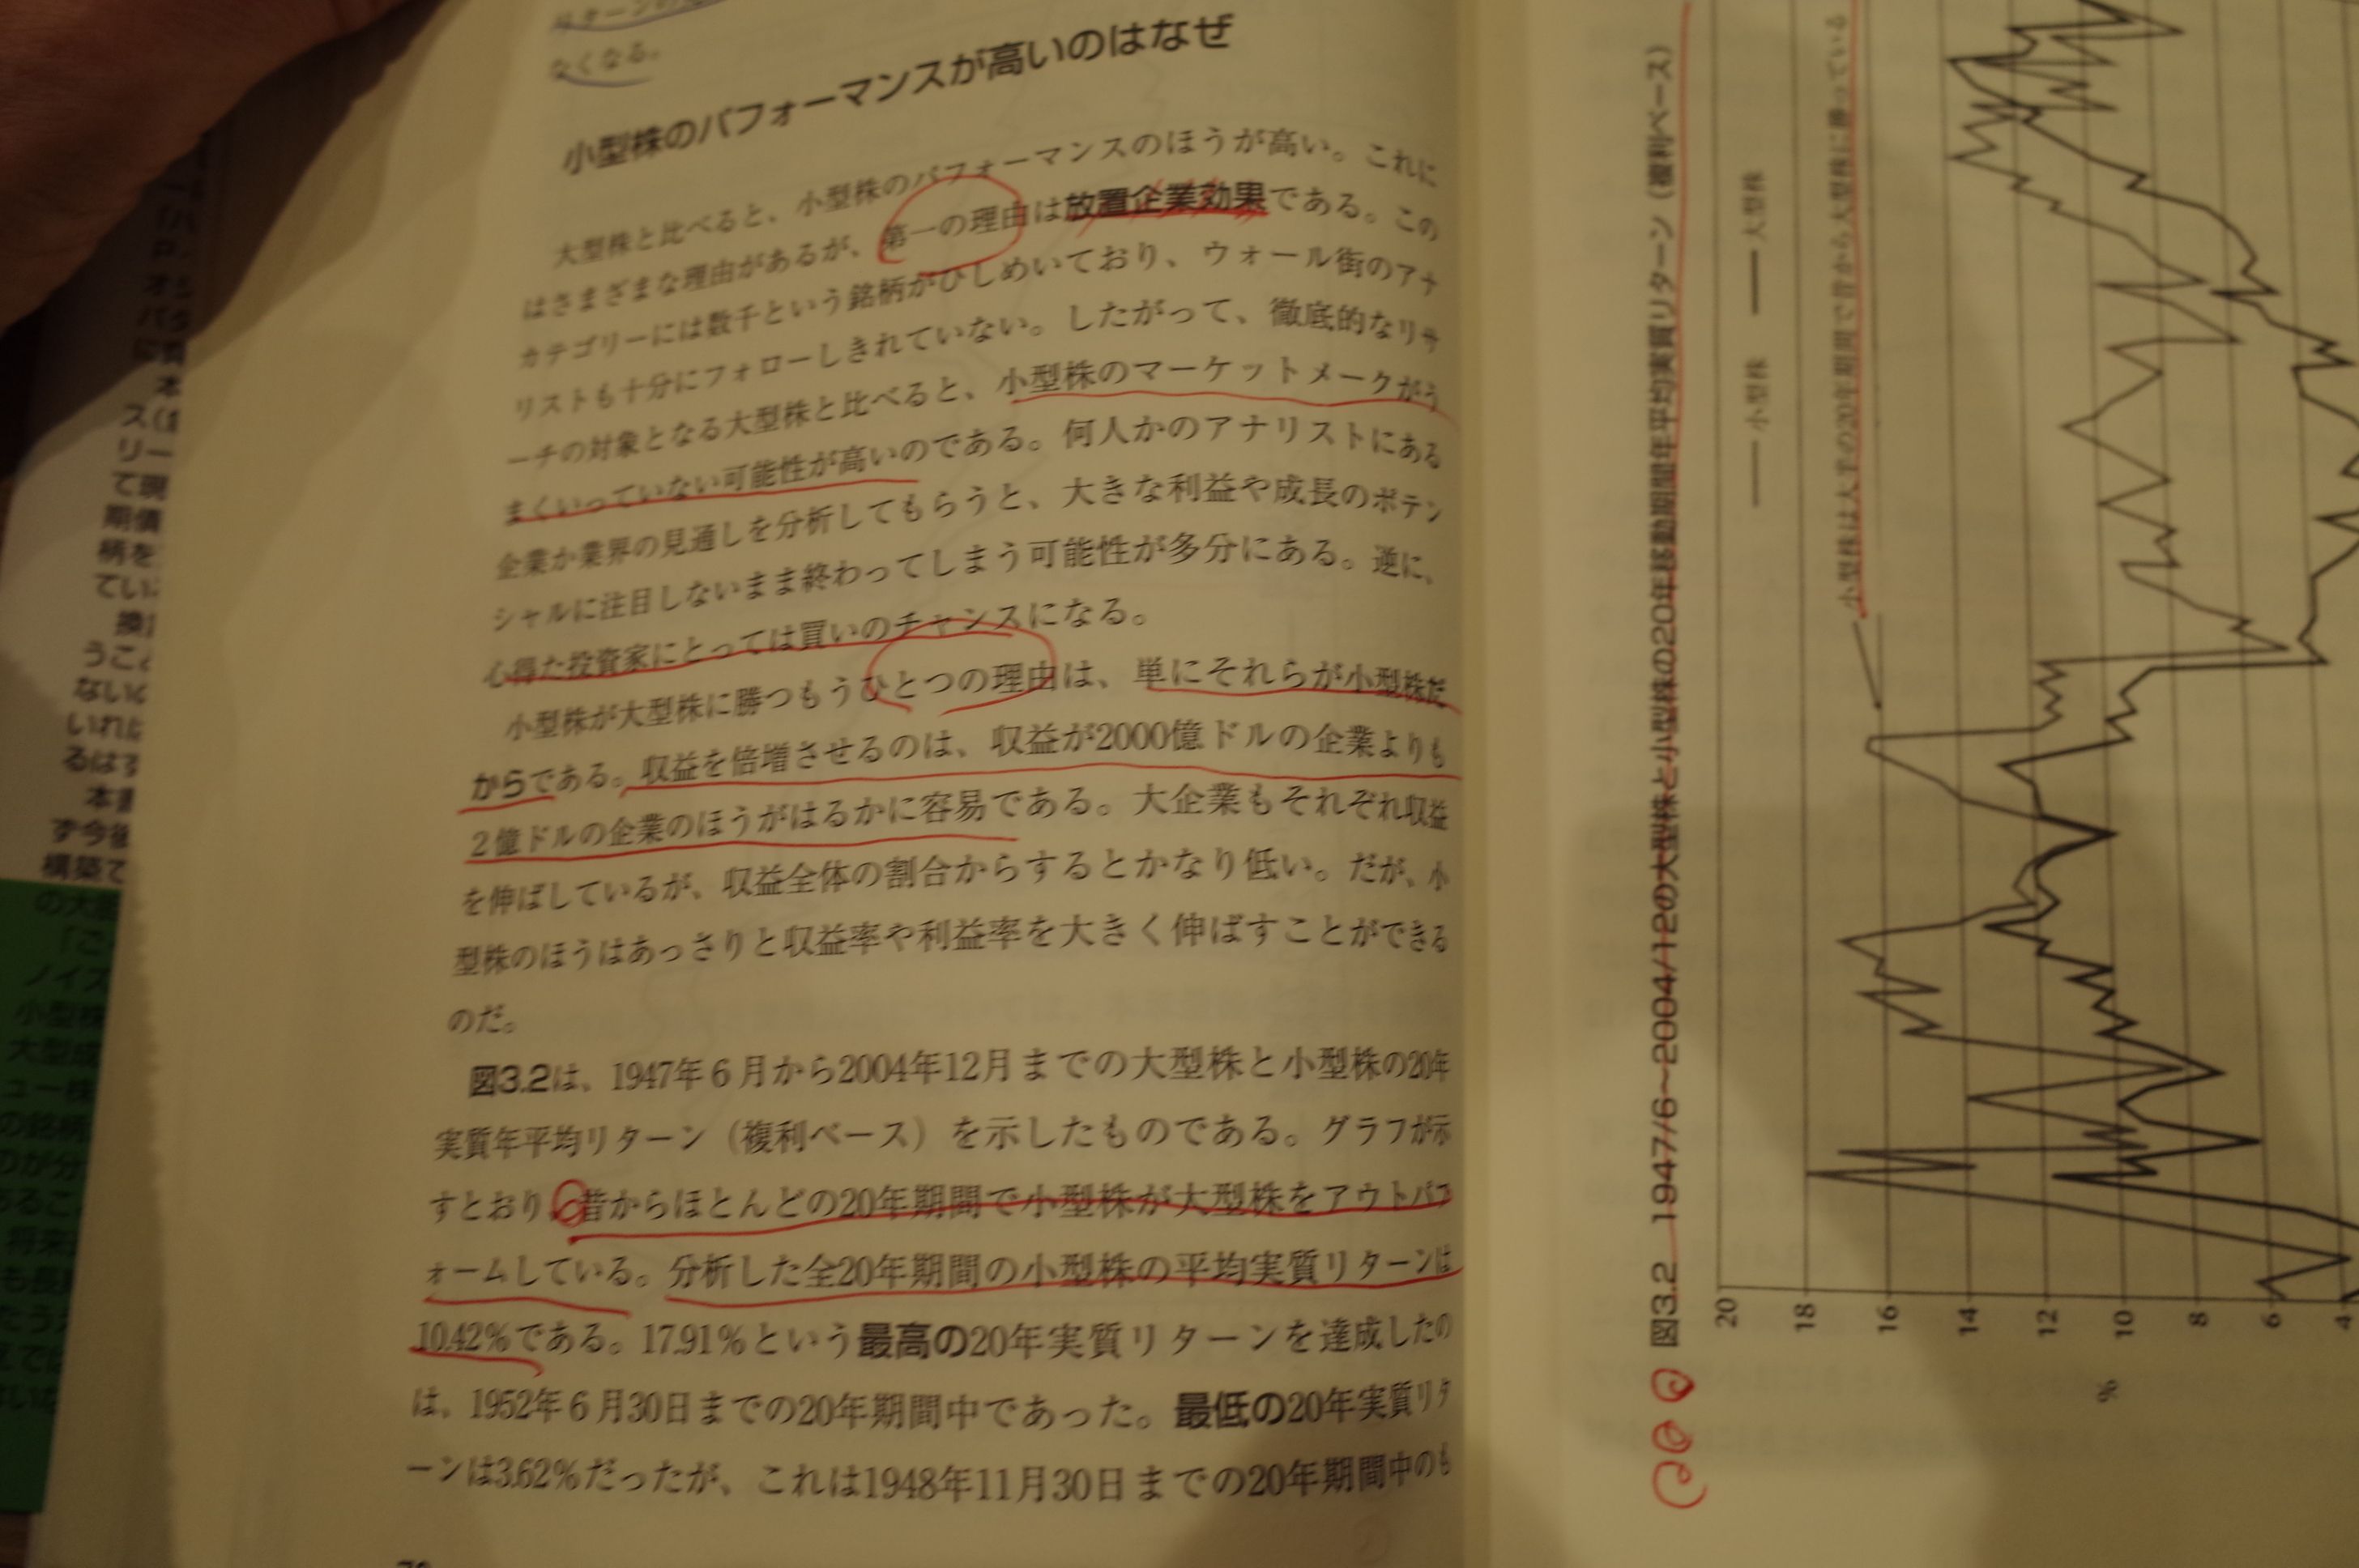 なくなる。
小型株のパフォーマンスが高いのはなぜ
大型株と比べると、小型株のパフォーマンスのほうが高い。これに
はさまざまな理由があるが、第一の理由は放置企業効果である。この
カテゴリーには数千という銘柄がひしめいており、ウォール街のアナ
リストも十分にフォローしきれていない。したがって、徹底的なリサ
ーチの対象となる大型株と比べると、小型株のマーケットメークがう
まくいっていない可能性が高いのである。何人かのアナリストにある
企業か業界の見通しを分析してもらうと、大きな利益や成長のポテン
シャルに注目しないまま終わってしまう可能性が多分にある。逆に、
心得た投資家にとっては買いのチャンスになる。
小型株が大型株に勝つもうひとつの理由は、単にそれらが小型株だ
からである。収益を倍増させるのは、収益が2000億ドルの企業よりも
2億ドルの企業のほうがはるかに容易である。大企業もそれぞれ収益
を伸ばしているが、収益全体の割合からするとかなり低い。だが、小
型株のほうはあっさりと収益率や利益率を大きく伸ばすことができる
のだ。
図3.2は、1947年6月から2004年12月までの大型株と小型株の20年
実質年平均リターン（複利ベース）を示したものである。グラフが示
すとおり、昔からほとんどの20年期間で小型株が大型株をアウトパフ
ォームしている。分析した全20年期間の小型株の平均実質リターンは
10.42％である。17.91％という最高の20年実質リターンを達成したの
は、1952年6月30日までの20年期間中であった。最低の20年実質リタ
ーンは3.62％だったが、これは1948年11月30日までの20年期間中のも
図3.2 1947/6〜2004/12の大型株と小型株の20年移動期間年平均実質リターン（複利ベース）
小型株 大型株
小型株は大半の20年期間で昔から大型株に勝っている
%
20
18
16
14
12
10
8
6
4